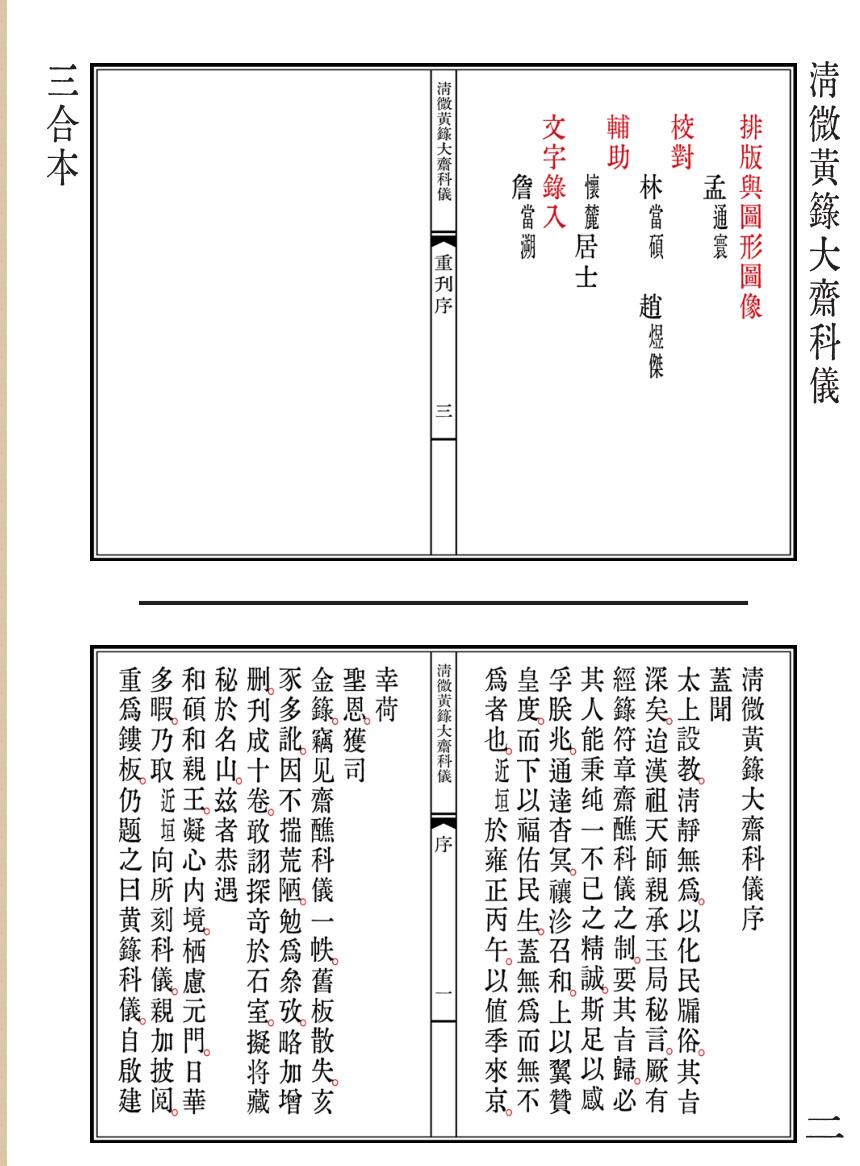 清微黃籙大齋科儀
排版與圖形圖像
孟通寰
校對
林當碩 趙煜傑
輔助
懷麓居士
文字錄入
詹當溯
清微黃籙大齋科儀 重刊序 三
三合本
清微黃籙大齋科儀序
蓋聞
太上設教。清靜無為。以化民牖俗。其旨
深矣。迨漢祖天師親承玉局秘言。厥有
經籙符章齋醮科儀之制。要其旨歸。必
其人能秉纯一不已之精誠。斯足以感
孚朕兆。通達杳冥。禳沴召和。上以翼贊
皇度。而下以福佑民生。蓋無為而無不
為者也。近垣於雍正丙午。以值季來京。
清微黃籙大齋科儀 序 一
幸荷
聖恩。獲司
金籙。竊见齋醮科儀一帙。舊板散失。亥
豕多訛。因不揣荒陋。勉為叅攷。略加增
删。刊成十卷。敢詡探竒於石室。擬将藏
秘於名山。兹者恭遇
和碩和親王。凝心内境。栖慮元門。日華
多暇。乃取近垣向所刻科儀。親加披阅。
重為鏤板。仍题之曰黄籙科儀。自啟建
二